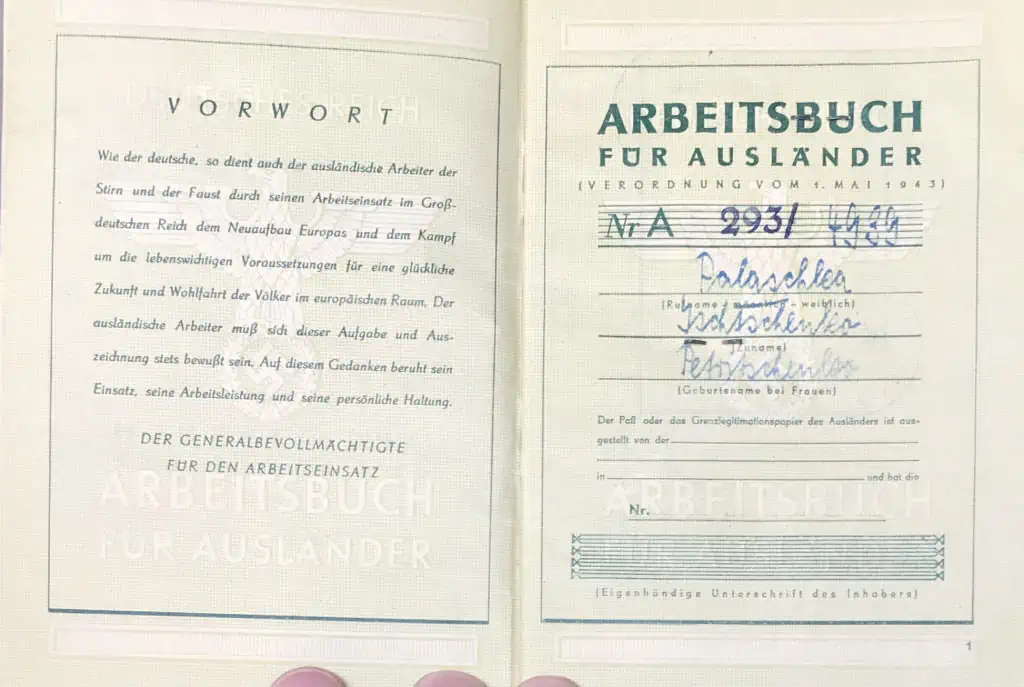 DEUTSCHES REICH
VORWORT
Wie der deutsche, so dient auch der ausländische Arbeiter der
Stirn und der Faust durch seinen Arbeitseinsatz im Groß-
deutschen Reich dem Neuaufbau Europas und dem Kampf
um die lebenswichtigen Voraussetzungen für eine glückliche
Zukunft und Wohlfahrt der Völker im europäischen Raum. Der
ausländische Arbeiter muß sich dieser Aufgabe und Aus-
zeichnung stets bewußt sein. Auf diesem Gedanken beruht sein
Einsatz, seine Arbeitsleistung und seine persönliche Haltung.
DER GENERALBEVOLLMÄCHTIGTE
FÜR DEN ARBEITSEINSATZ
ARBEITSBUCH
FÜR AUSLÄNDER
ARBEITSBUCH
FÜR AUSLÄNDER
(VERORDNUNG VOM 1. MAI 1943)
Nr A 293/ 4939
Palaschka
(Rufname - männlich - weiblich)
(Zuname)
(Geburtsname bei Frauen)
Der Paß oder das Grenzlegitimationspapier des Ausländers ist aus-
gestellt von der
in und hat die
ARBEITSBUCH
Nr.
FÜR AUSLÄNDER
(Eigenhändige Unterschrift des Inhabers)
1